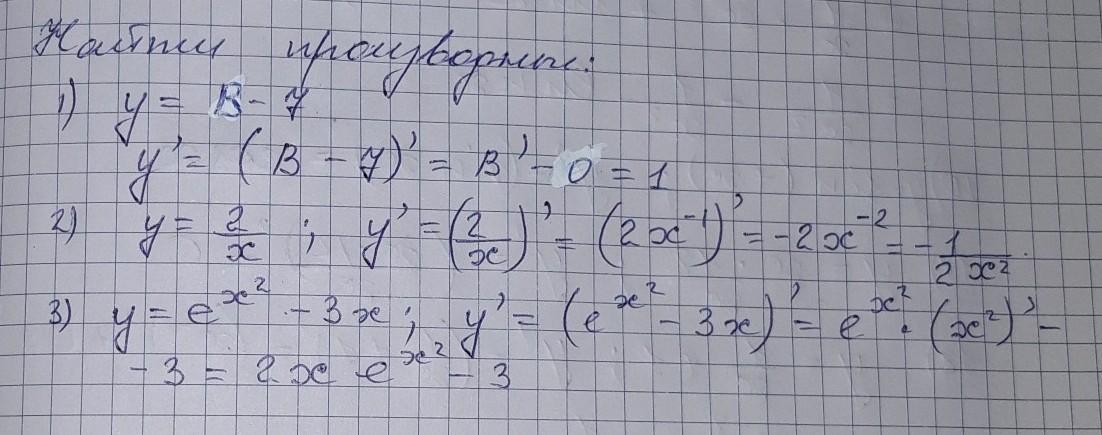 Найти производные:
1) y = B - 7
y' = (B - 7)' = B' - 0 = 1
2) y = 2/x ; y' = (2/x)' = (2x⁻¹)' = -2x⁻² = -1/2x²
3) y = e^x² - 3x ; y' = (e^x² - 3x)' = e^x² · (x²)' -
- 3 = 2x e^x² - 3